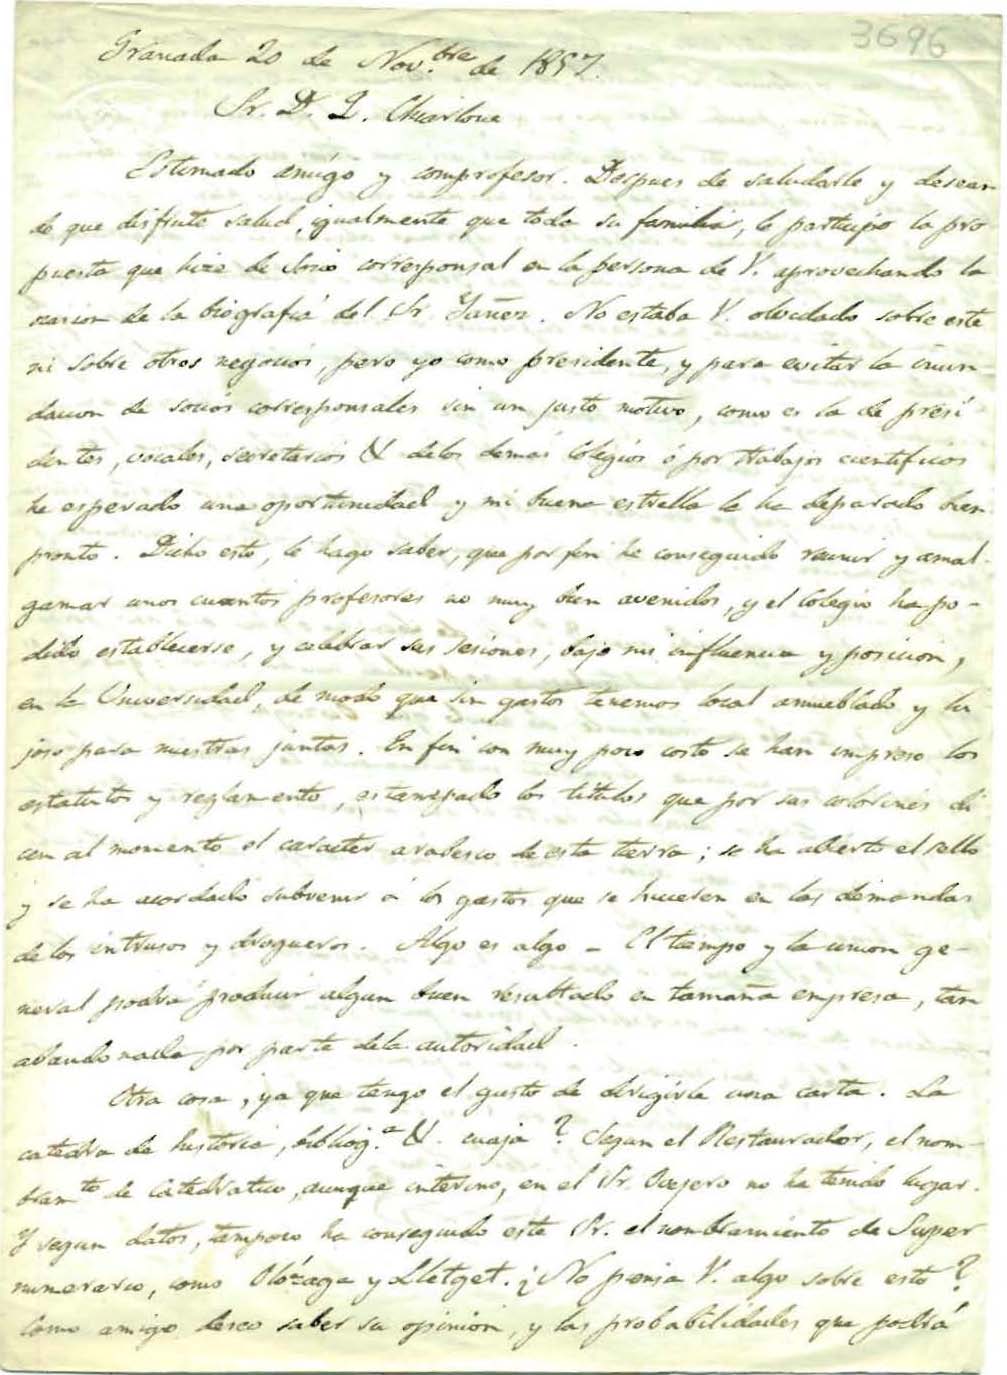 3696
Granada 20 de Nov.bre de 1857.
Sr. D. Q. Chiarlone
Estimado amigo y comprofesor. Despues de saludarle y desean
do que disfrute salud, igualmente que toda su familia, le participo la pro
puesta que hize de Socio corresponsal en la persona de V. aprovechando la
ocasion de la biografia del Sr. Yañez. No estaba V. olvidado sobre este
ni sobre otros negocios, pero yo como presidente, y para evitar la inun-
dacion de socios corresponsales sin un justo motivo, como es la de presi
dentes, vocales, secretarios & delos demás Colegios ó por trabajos cientificos
he esperado una oportunidad y mi buena estrella la ha deparado bien
pronto. Dicho esto, le hago saber, que por fin he conseguido reunir y amal-
gamar unos cuantos profesores no muy bien avenidos, y el Colegio ha po-
dido establecerse, y celebrar sus sesiones, bajo mi influencia y posicion,
en la Universidad, de modo que sin gastos tenemos local amueblado y lu
joso para nuestras juntas. En fin con muy poco costo se han impreso los
estatutos y reglamento, estampado los titulos que por sus colorines di
cen al momento el caracter arabesco de esta tierra; se ha abierto el sello
y se ha acordado subvenir á los gastos que se hiciesen en las demandas
de los intrusos y drogueros. Algo es algo - El tiempo y la union ge-
neral podrá producir algun buen resultado en tamaña empresa, tan
abandonada por parte dela autoridad.
Otra cosa, ya que tengo el gusto de dirigirle una carta. La
catedra de historia, bibliog.a &. cuaja? Segun el Restaurador, el nom-
bram.to de Catedratico, aunque interino, en el Sr. Ovejero no ha tenido lugar.
Y segun datos, tampoco ha conseguido este Sr. el nombramiento de Super
numerario, como Olózaga y Lletget. ¿No piensa V. algo sobre esto?
Como amigo deseo saber su opinion, y las probabilidades que podrá